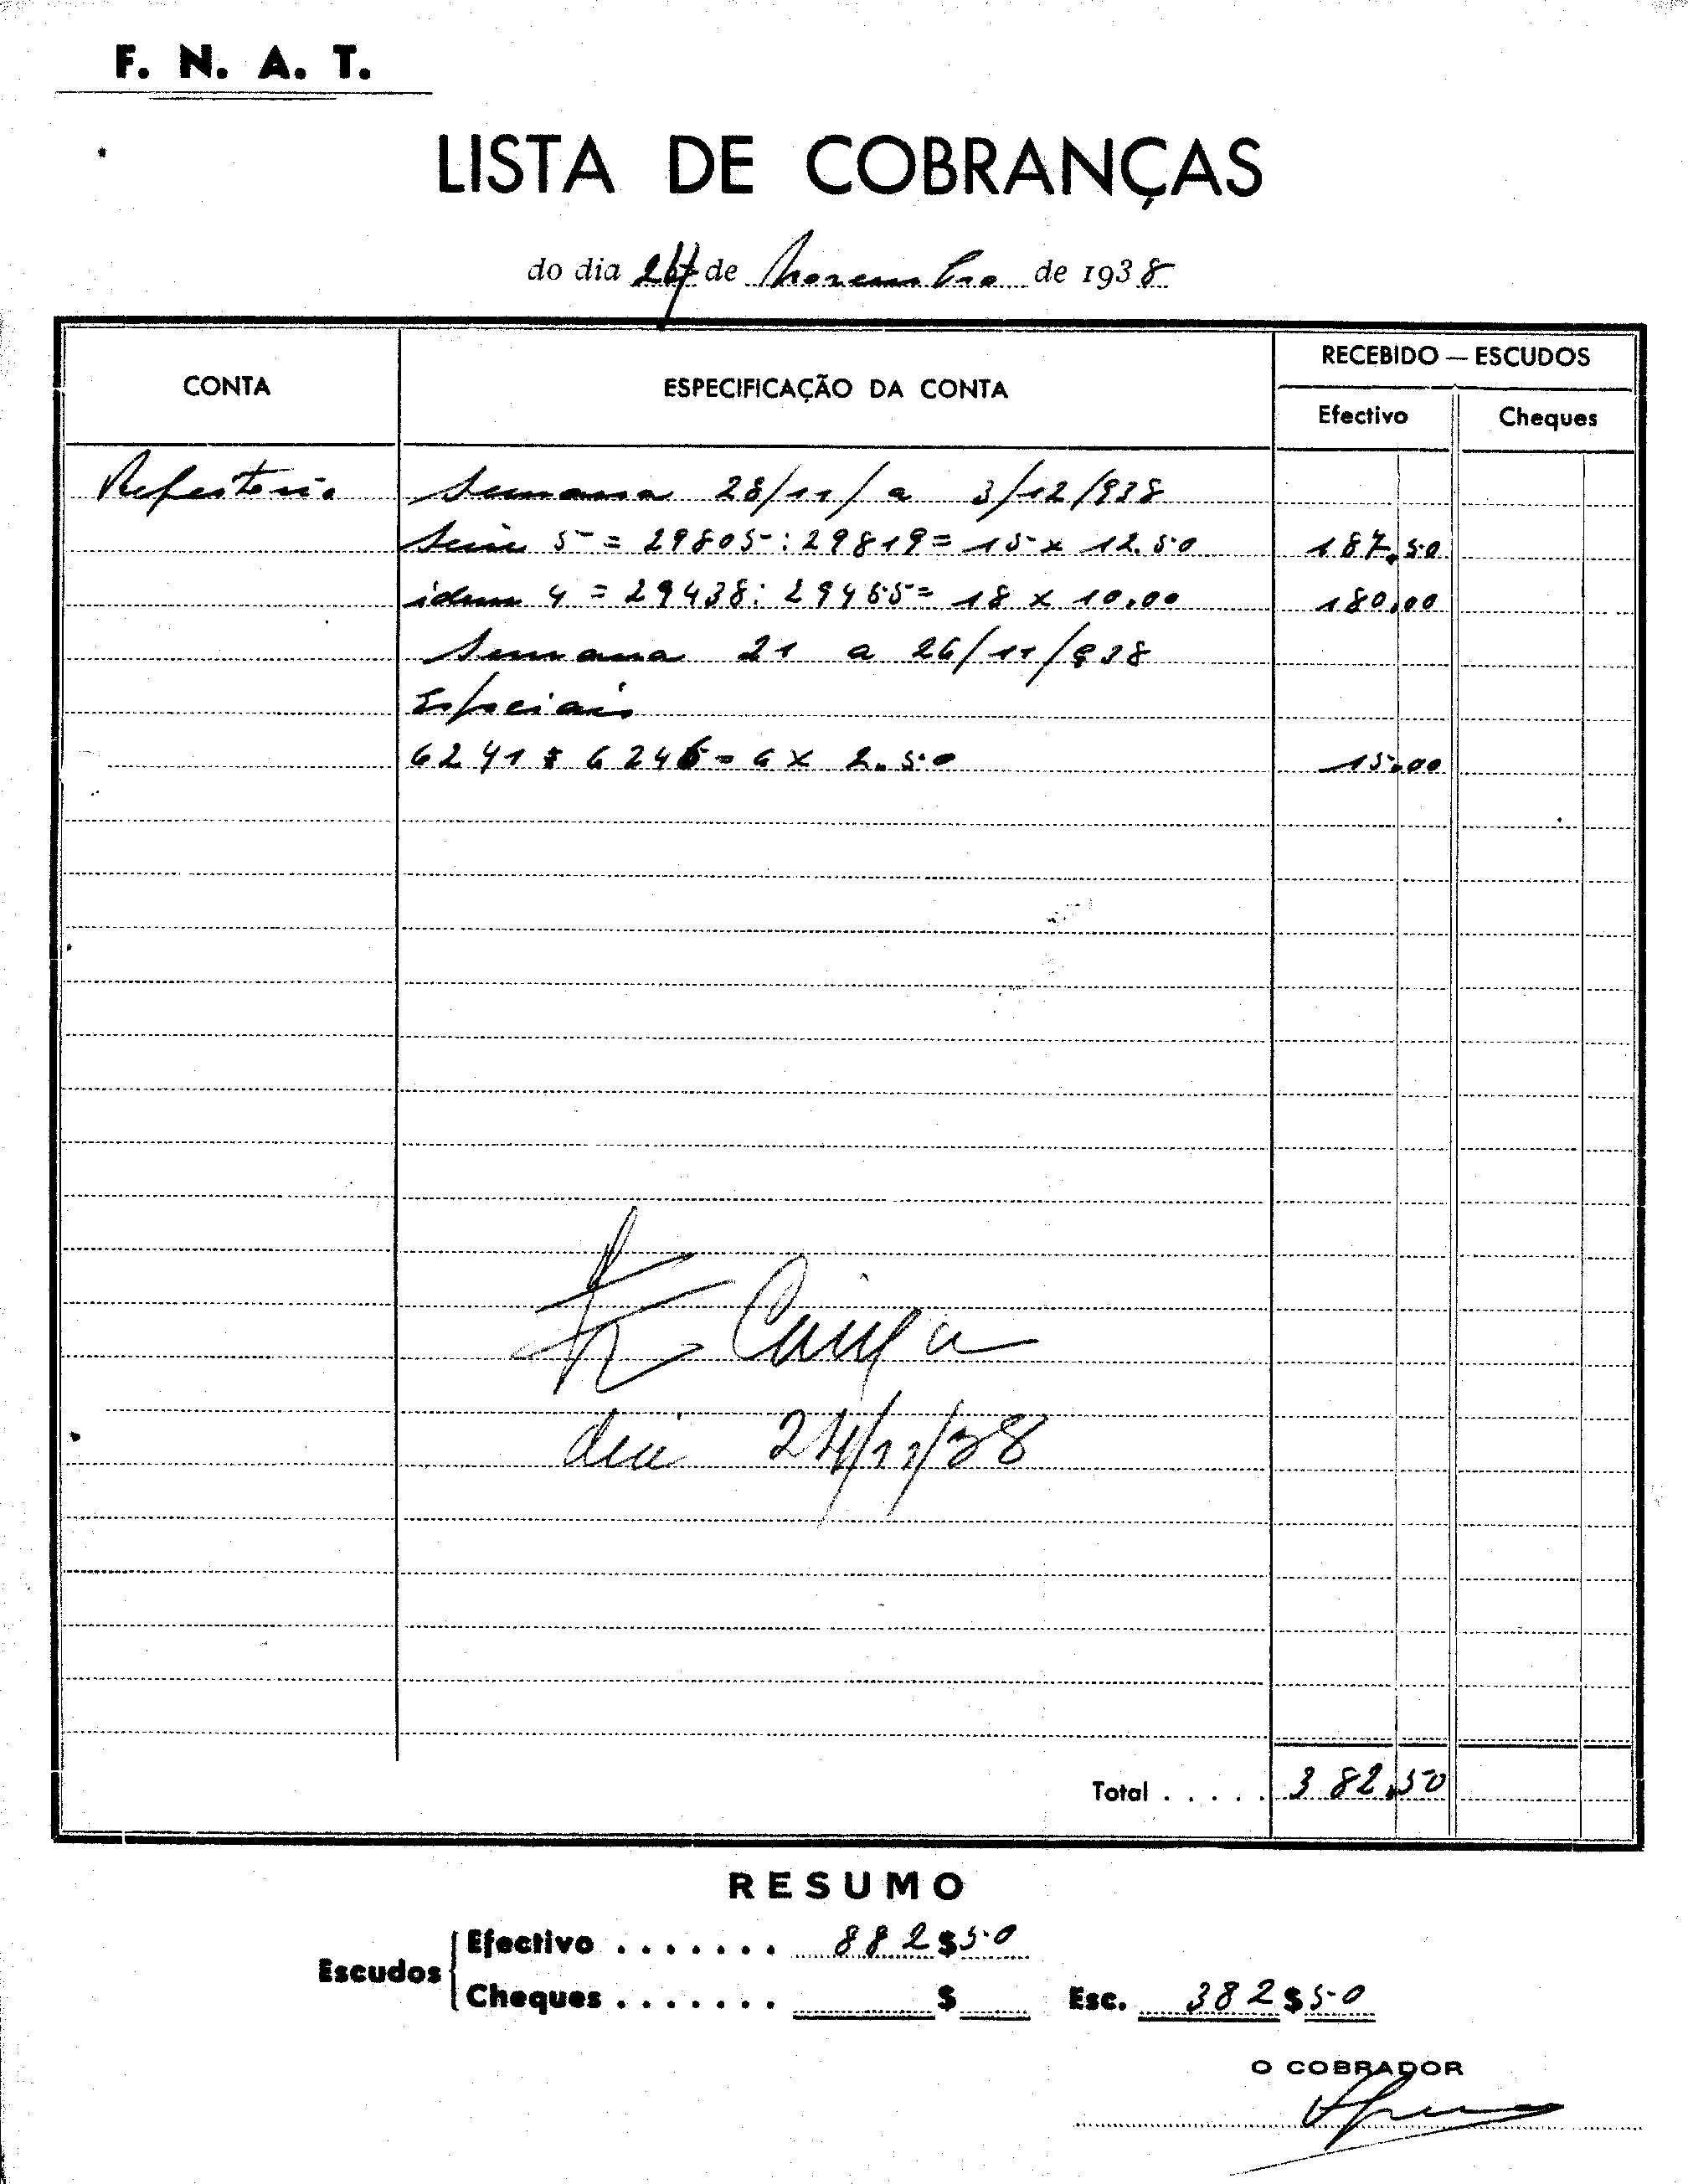 F. N. A. T.
LISTA DE COBRANÇAS
do dia 24 de Novembro de 1938
RECEBIDO — ESCUDOS
CONTA ESPECIFICAÇÃO DA CONTA
Efectivo Cheques
Refeitorio Semana 28/11/ a 3/12/938
Serie 5 = 29805: 29819 = 15 x 12.50 187,50
idem 4 = 29438: 29455 = 18 x 10,00 180,00
Semana 21 a 26/11/938
Especiais
6241 : 6246 = 6 x 2.50 15,00
dia 24/11/38
Total . . . . . 382,50
RESUMO
Efectivo . . . . . . . 882$50
Escudos
Cheques . . . . . . . $ Esc. 382$50
O COBRADOR